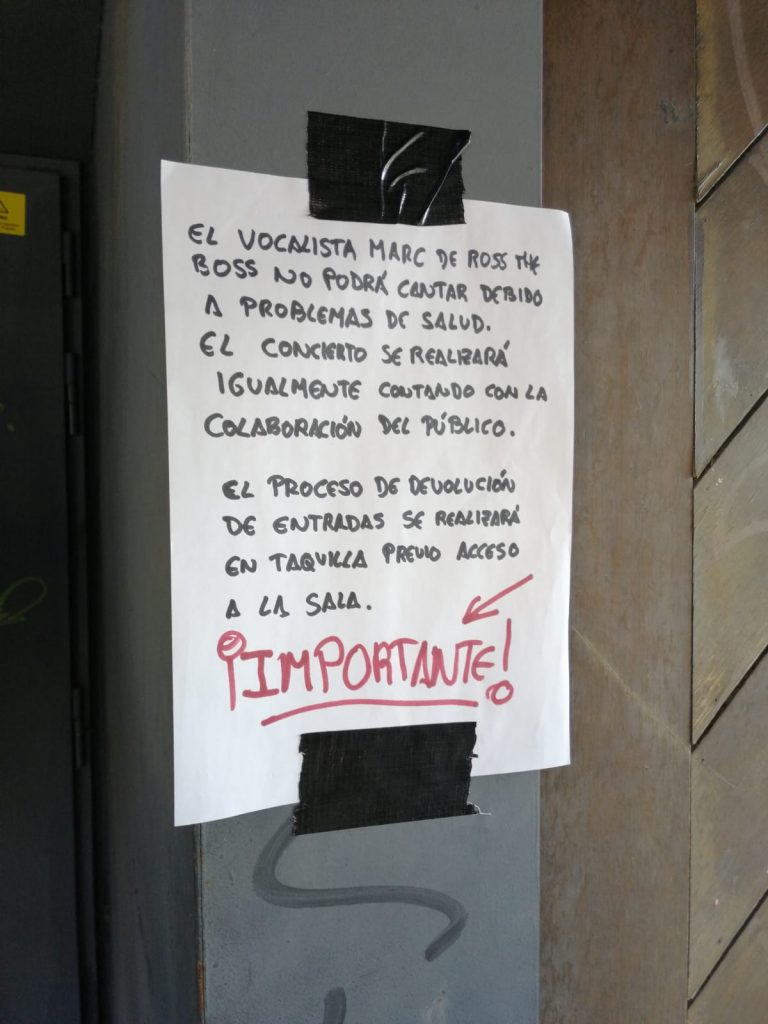 EL VOCALISTA MARC DE ROSS THE
BOSS NO PODRÁ CANTAR DEBIDO
A PROBLEMAS DE SALUD.
EL CONCIERTO SE REALIZARÁ
IGUALMENTE CONTANDO CON LA
COLABORACIÓN DEL PÚBLICO.
EL PROCESO DE DEVOLUCIÓN
DE ENTRADAS SE REALIZARÁ
EN TAQUILLA PREVIO ACCESO
A LA SALA.
¡IMPORTANTE!